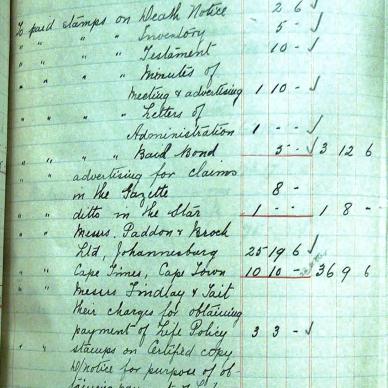 To paid stamps on Death Notice 2 6 ✓
" " " " Inventory 5 - ✓
" " " " Testament 10 - ✓
" " " " Minutes of
Meeting & advertising 1 10 - ✓
" " " " Letters of
Administration 1 - - ✓
" " " " Baid Bond. 5 - ✓ 3 12 6
" " advertising for claims
in the Gazette 8 -
" " ditto in the Star 1 - - 1 8 -
" " Messrs. Paddon & Brock
Ltd, Johannesburg 25 19 6 ✓
" " Cape Times, Cape Town 10 10 - 36 9 6
" " Messrs Findlay & Tait
their charges for obtaining
payment of Life Policy 3 3 - ✓
" " stamps on Certified copy
D/notice for purpose of ob-